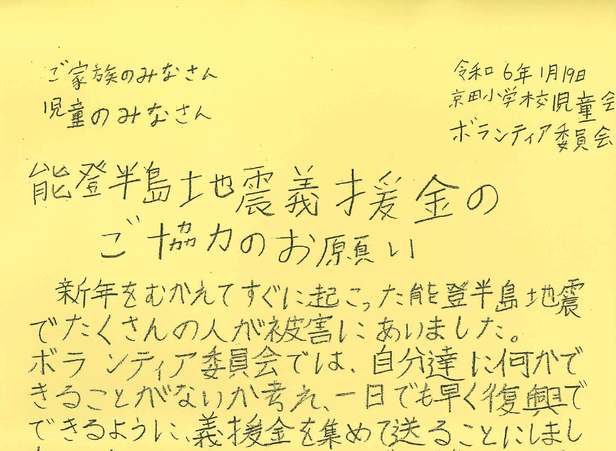 ご家族のみなさん
児童のみなさん
令和6年1月19日
京田小学校児童会
ボランティア委員会
能登半島地震義援金の
ご協力のお願い
新年をむかえてすぐに起こった能登半島地震
でたくさんの人が被害にあいました。
ボランティア委員会では、自分達に何かで
きることがないか考え、一日でも早く復興で
できるように、義援金を集めて送ることにしまし